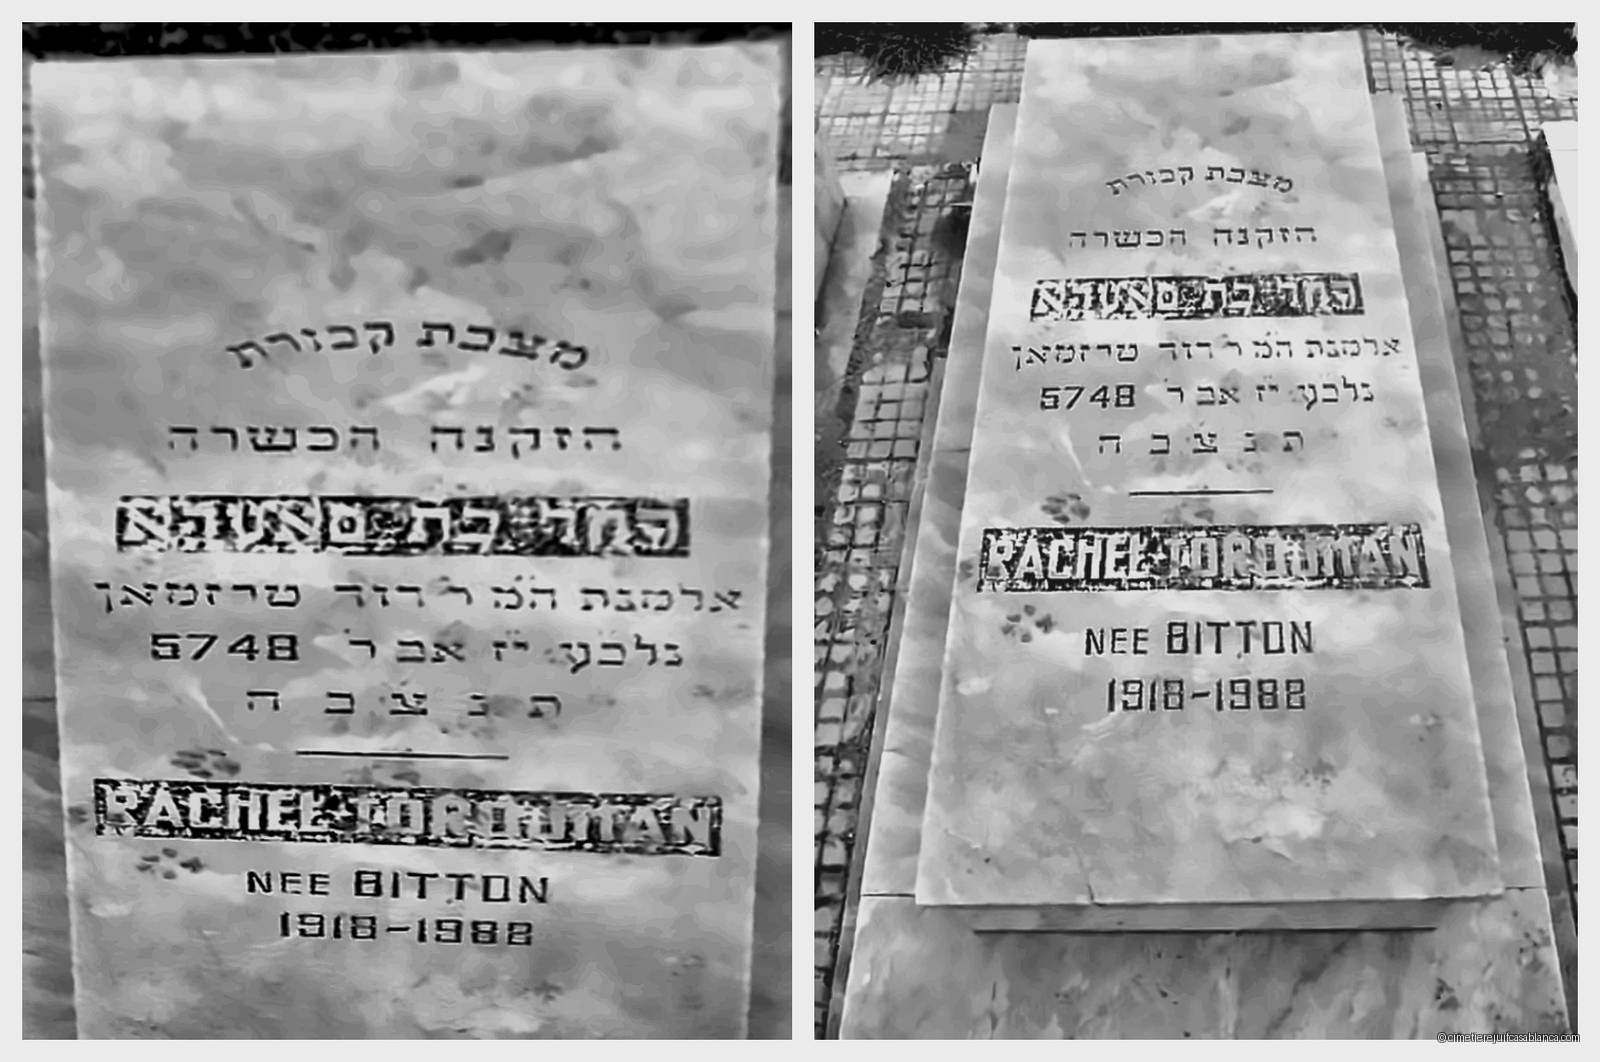 מצבת קבורת
הזקנה הכשרה
קמר בת סאעדא
אלמנת המ ר דוד טרזמאן
נלבע י״ז אב ר׳ 5748
ת נ צ ב ה
RACHEL TORDJMAN
NEE BITTON
1918-1988
מצבת קבורת
הזקנה הכשרה
קמר בת סאעדא
אלמנת המ ר דוד טרזמאן
נלבע י״ז אב ר׳ 5748
ת נ צ ב ה
RACHEL TORDJMAN
NEE BITTON
1918-1988
©cimetierejuifcasablanca.com